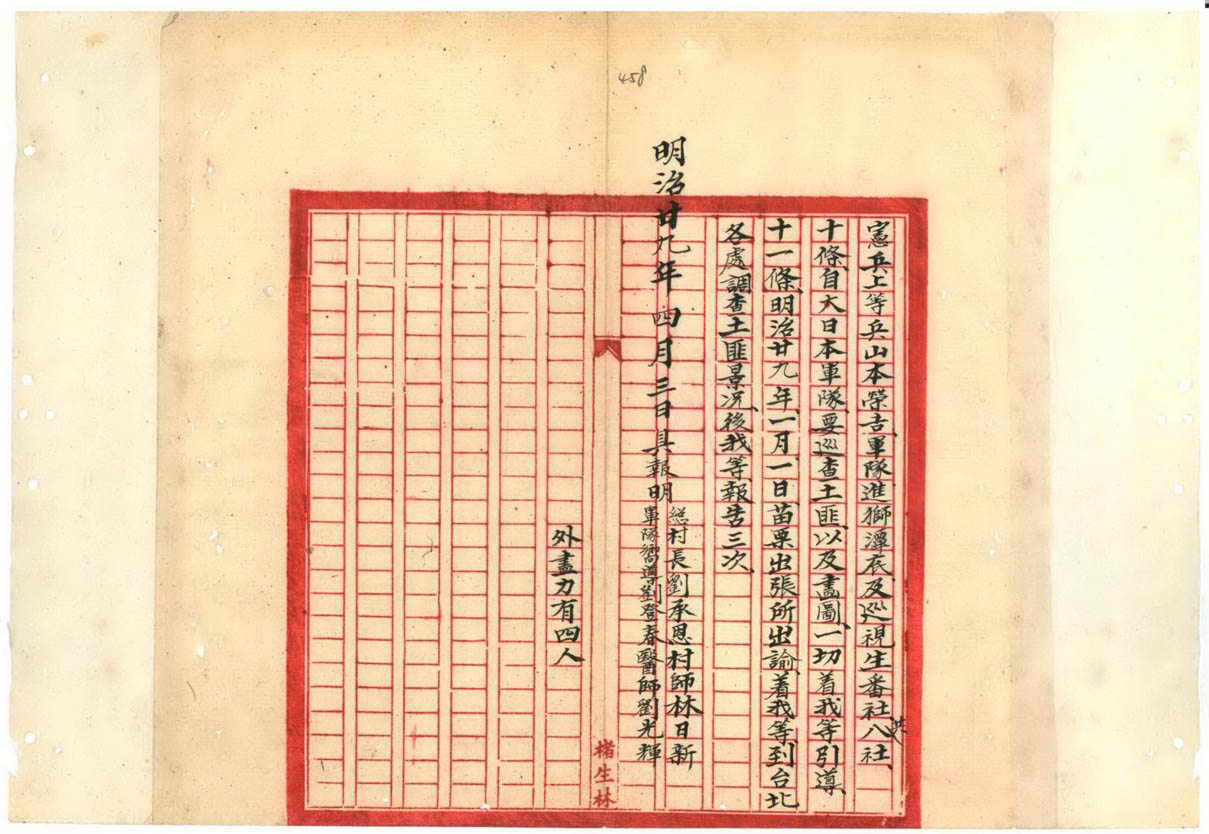 458
憲兵上等兵山本榮吉、軍隊進獅潭底、及巡視生番社共八社、
十條、自大日本軍隊、要巡查土匪、以及畫圖、一切着我等引導、
十一條、明治廿九年、一月一日、苗栗出張所出諭、着我等到台北
各處調查土匪景况、後我等報告三次、
明治廿九年四月三日具報明
總村長劉承恩村師林日新
軍隊嚮導劉登春醫師劉光輝
外盡力有四人
楮生林